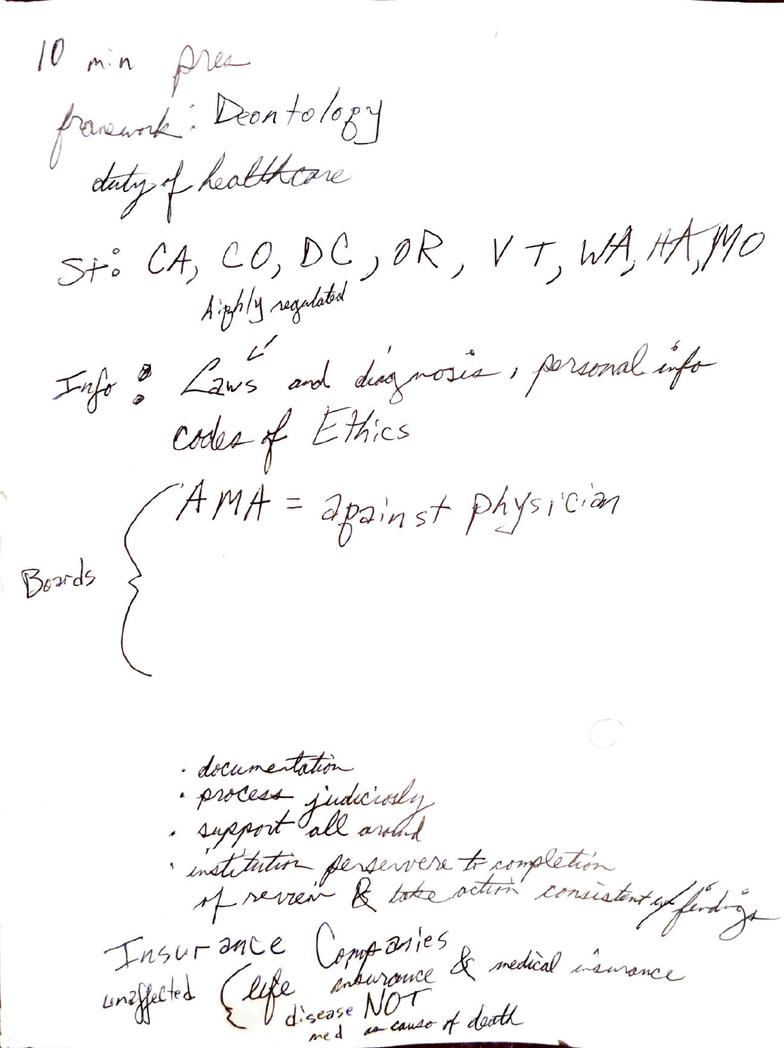 10 min pres
framework: Deontology
duty of healthcare
St: CA, CO, DC, OR, VT, WA, HA, MO
highly regulated
Info: Laws and diagnosis, personal info
codes of Ethics
AMA = against physician
Boards
· documentation
· process judiciosly
· support all around
· institution perservere to completion
of review & take action consistent w/ findings
Insurance Companies
unaffected life insurance & medical insurance
disease NOT
med as cause of death